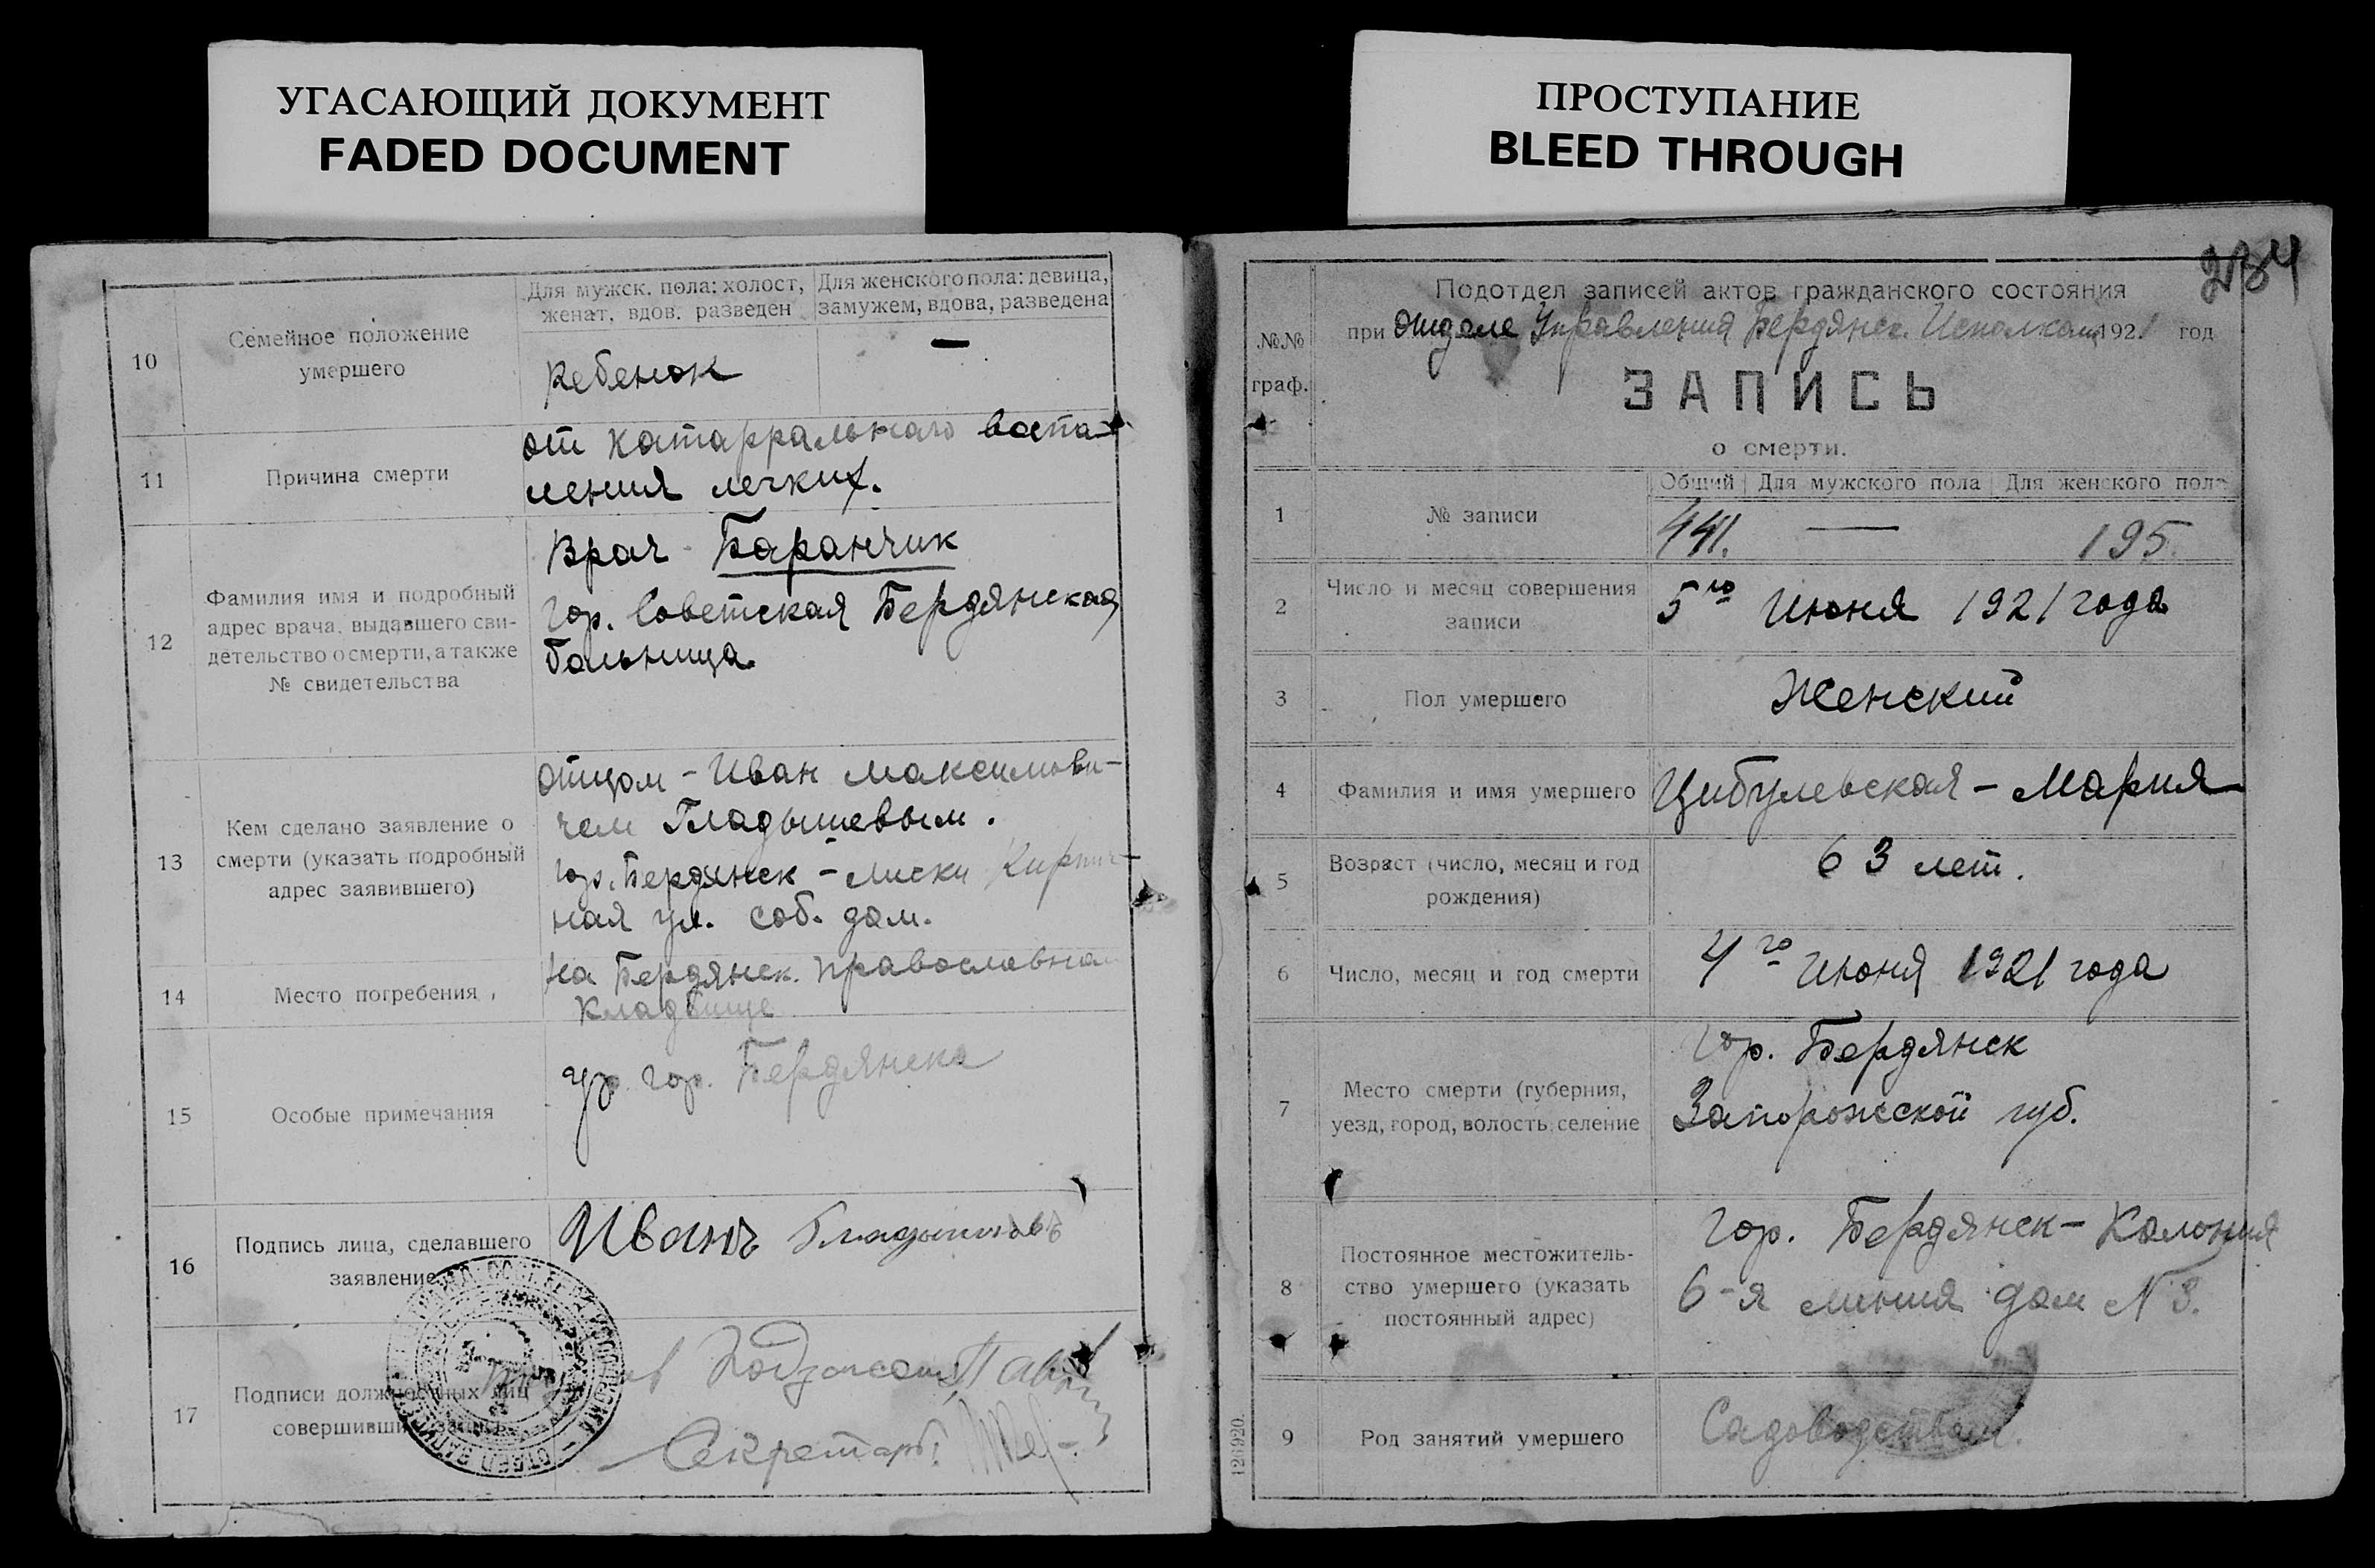 УГАСАЮЩИЙ ДОКУМЕНТ
FADED DOCUMENT
10
Семейное положение
умершего
Для мужск. пола: холост,
женат, вдов. разведен
Для женского пола: девица,
замужем, вдова, разведена
Ребенок
—
11
Причина смерти
от катаррального воспа-
ления легких.
12
Фамилия имя и подробный
адрес врача, выдавшего сви-
детельство о смерти, а также
№ свидетельства
Врач Баранчик
гор. Советская Бердянская
больница.
13
Кем сделано заявление о
смерти (указать подробный
адрес заявившего)
отцом - Иван Максимови-
чем Гладышевым.
гор. Бердянск - Лиски Кирпич-
ная ул. соб. дом.
14
Место погребения
на Бердянск. православном
кладбище
15
Особые примечания
ур. гор. Бердянска
16
Подпись лица, сделавшего
заявление
Иванъ Гладышевъ
17
Подписи должностных лиц
совершивших запись
Секретарь
ПРОСТУПАНИЕ
BLEED THROUGH
234
№№
граф.
Подотдел записей актов гражданского состояния
при Отделе Управления Бердянск. Исполкома 1921 год
ЗАПИСЬ
о смерти.
1
№ записи
Общий
Для мужского пола
Для женского пола
441.
—
195.
2
Число и месяц совершения
записи
5го Июня 1921 года
3
Пол умершего
Женский
4
Фамилия и имя умершего
Цибулевская - Мария
5
Возраст (число, месяц и год
рождения)
63 лет.
6
Число, месяц и год смерти
4го Июня 1921 года
7
Место смерти (губерния,
уезд, город, волость селение
Гор. Бердянск
Запорожской губ.
8
Постоянное местожитель-
ство умершего (указать
постоянный адрес)
Гор. Бердянск - Колония
6-я линия дом N 3.
9
Род занятий умершего
Садоводством.
126920.